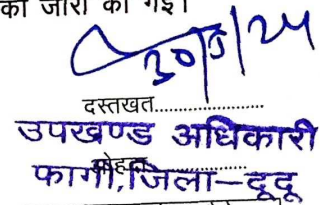 को जारी की गई।
30/5/24
दस्तखत......................
उपखण्ड अधिकारी
मोहर......................
फागी,जिला–दूदू